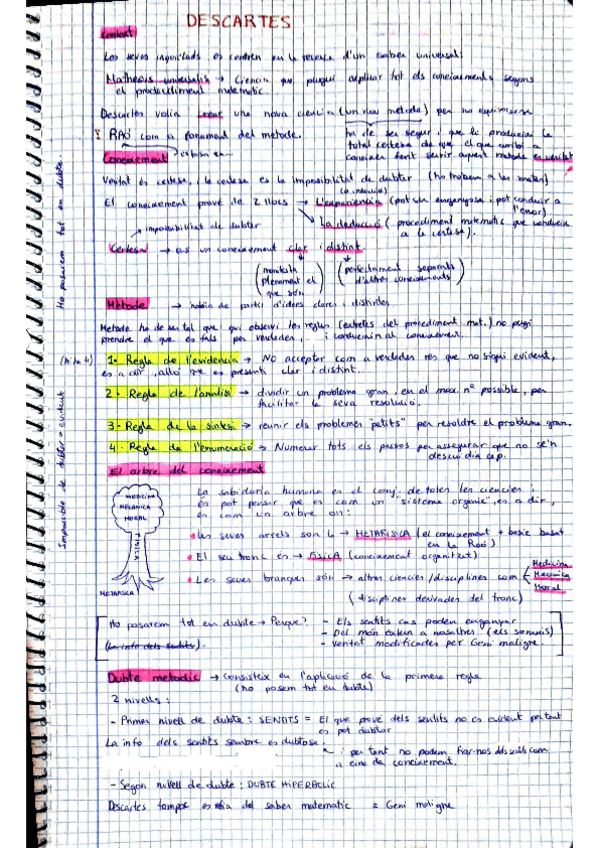 DESCARTES
Context
Les seves inquietuds es centren en la recerca d'un saber universal:
Mathesis universalis → Ciencia que pugui explicar tot els coneixements segons
el procediment matemàtic.
Descartes volia crear una nova ciencia (un nou metode) per no equivocarse
RAÓ com a fonament del metode.
ha de ser segur i que et produeixi la
total certesa de que el que arribis a
coneixer fent servir aquest metode es veritat
Coneixement
Veritat és certesa, i la certesa es la impossibilitat de dubtar (ho trobem a les mates)
El coneixement prové de 2 llocs → L'experiencia (pot ser enganyosa i pot conduir a
l'error)
La deducció (procediment matematic que condueix
a la certesa).
impossibilitat de dubtar
Certesa → es un coneixement clar i distint.
(manifesta plenament el que són)
(perfectament separats d'altres coneixements)
Ho posarem tot en dubte
Mètode → havia de partir d'idees clares i distintes
Metode ha de ser tal que qui observi les regles (extretes del procediment mat.) no pugi
prendre el que es fals per verdader, i condueixin al coneixement.
(hi ha 4)
1- Regla de l'evidencia → NO acceptar com a verdader res que no sigui evident,
es a dir, allò que es presenti clar i distint.
2- Regla de l'analisi → dividir un problema gran, en el max nº possible, per
facilitar la seva resolució.
3- Regla de la sintesi → reunir els problemes "petits" per resoldre el problema gran.
4- Regla de l'enumeració → Numerar tots els passos per assegurar que no se'n
descuidia cap.
Impossible de dubtar = evident
El arbre del coneixement
MEDICINA
MECANICA
MORAL
FISICA
METAFISICA
La sabiduria humana es el conj. de totes les ciencies;
es pot pensar que es com un "sistema organic", es a dir,
es com un arbre on:
• Les seves arrels son la → METAFISICA (el coneixement + basic basat
en la Raó)
• El seu tronc es → FISICA (coneixement organitzat)
• Les seves branques són → altres ciencies/disciplines com
Medicina
Mecanica
Moral
(disciplines derivades del tronc)
Ho posarem tot en dubte → Perque?
- Els sentits ens poden enganyar
(La info dels sentits).
- Del món extern a nosaltres. (els somnis)
- Veritat modificades per Geni maligne.
Dubte metodic → consisteix en l'aplicació de la primera regla
(ho posem tot en dubte)
2 nivells:
- Primer nivell de dubte: SENTITS = El que prové dels sentits no es evident per tant
es pot dubtar
La info dels sentits sembre es dubtosa
i per tant no podem fiar-nos dels sentits com
a eina de coneixement.
- Segon nivell de dubte: DUBTE HIPERBÒLIC
Descartes tampoc es refia del saber matematic = Geni maligne